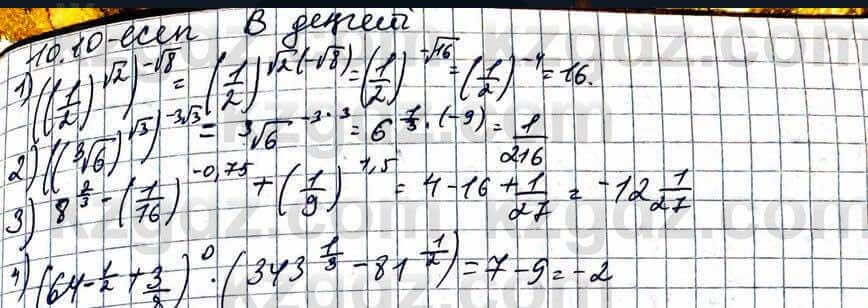 10.10-есеп В деңгей
1) ((1/2)^√2)^-√8 = (1/2)^√2(-√8) = (1/2)^-√16 = (1/2)^-4 = 16.
2) ((∛6)^√3)^-3√3 = ∛6^-3·3 = 6^1/3·(-9) = 1/216
3) 8^2/3 - (1/76)^-0,75 + (1/9)^1,5 = 4-16+1/27 = -12 1/27
4) (64^-1/2 + 3/8)^0 · (343^1/3 - 81^1/2) = 7-9 = -2